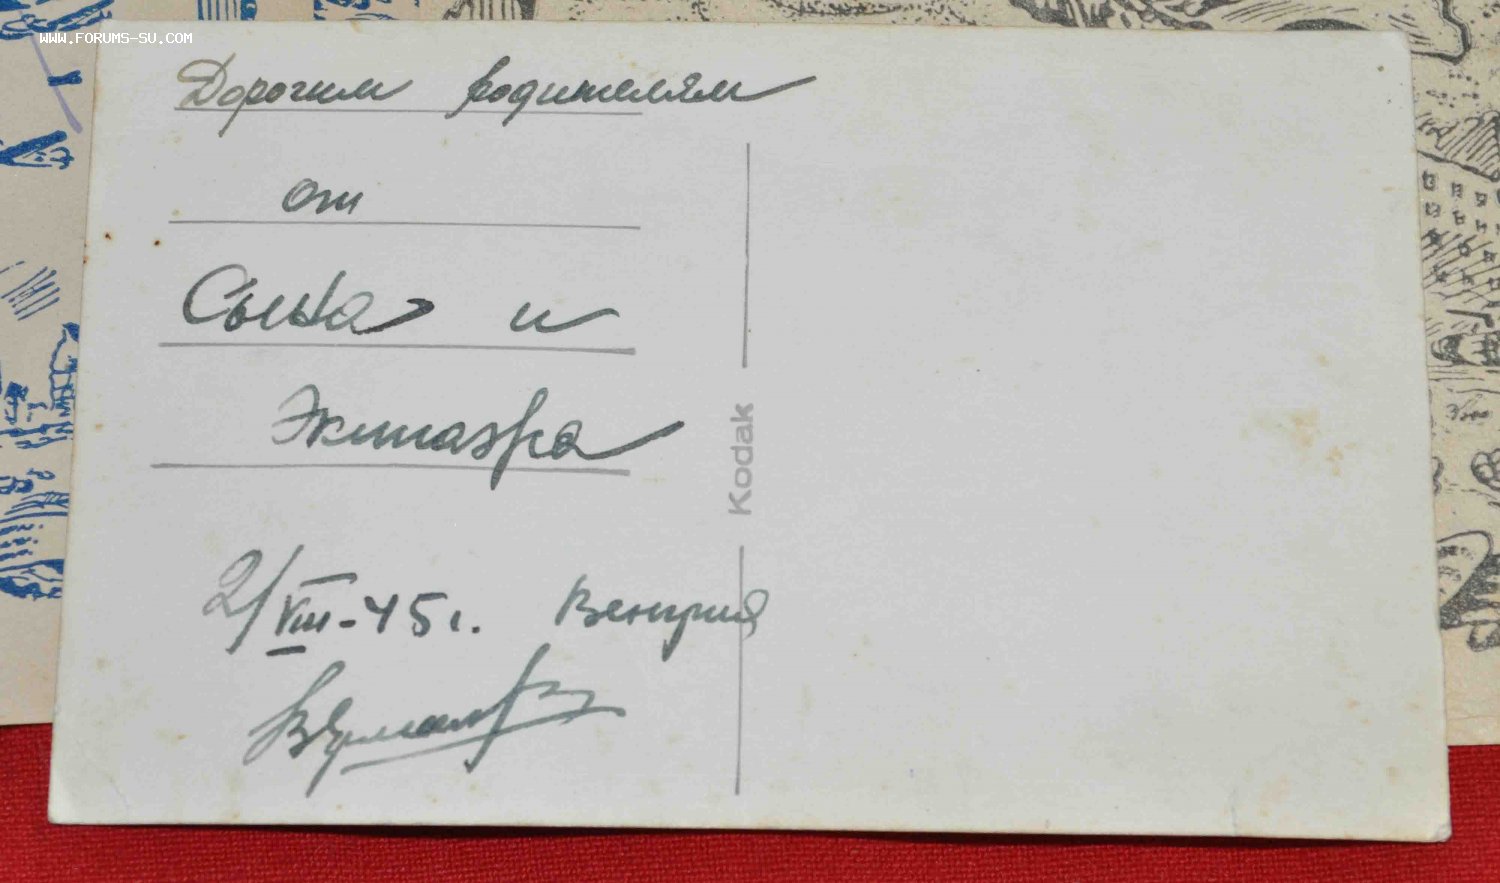 WWW.FORUMS-SU.COM
Дорогим родителям
от
Сына и
Экипажа
Kodak
2/VIII-45г. Венгрия